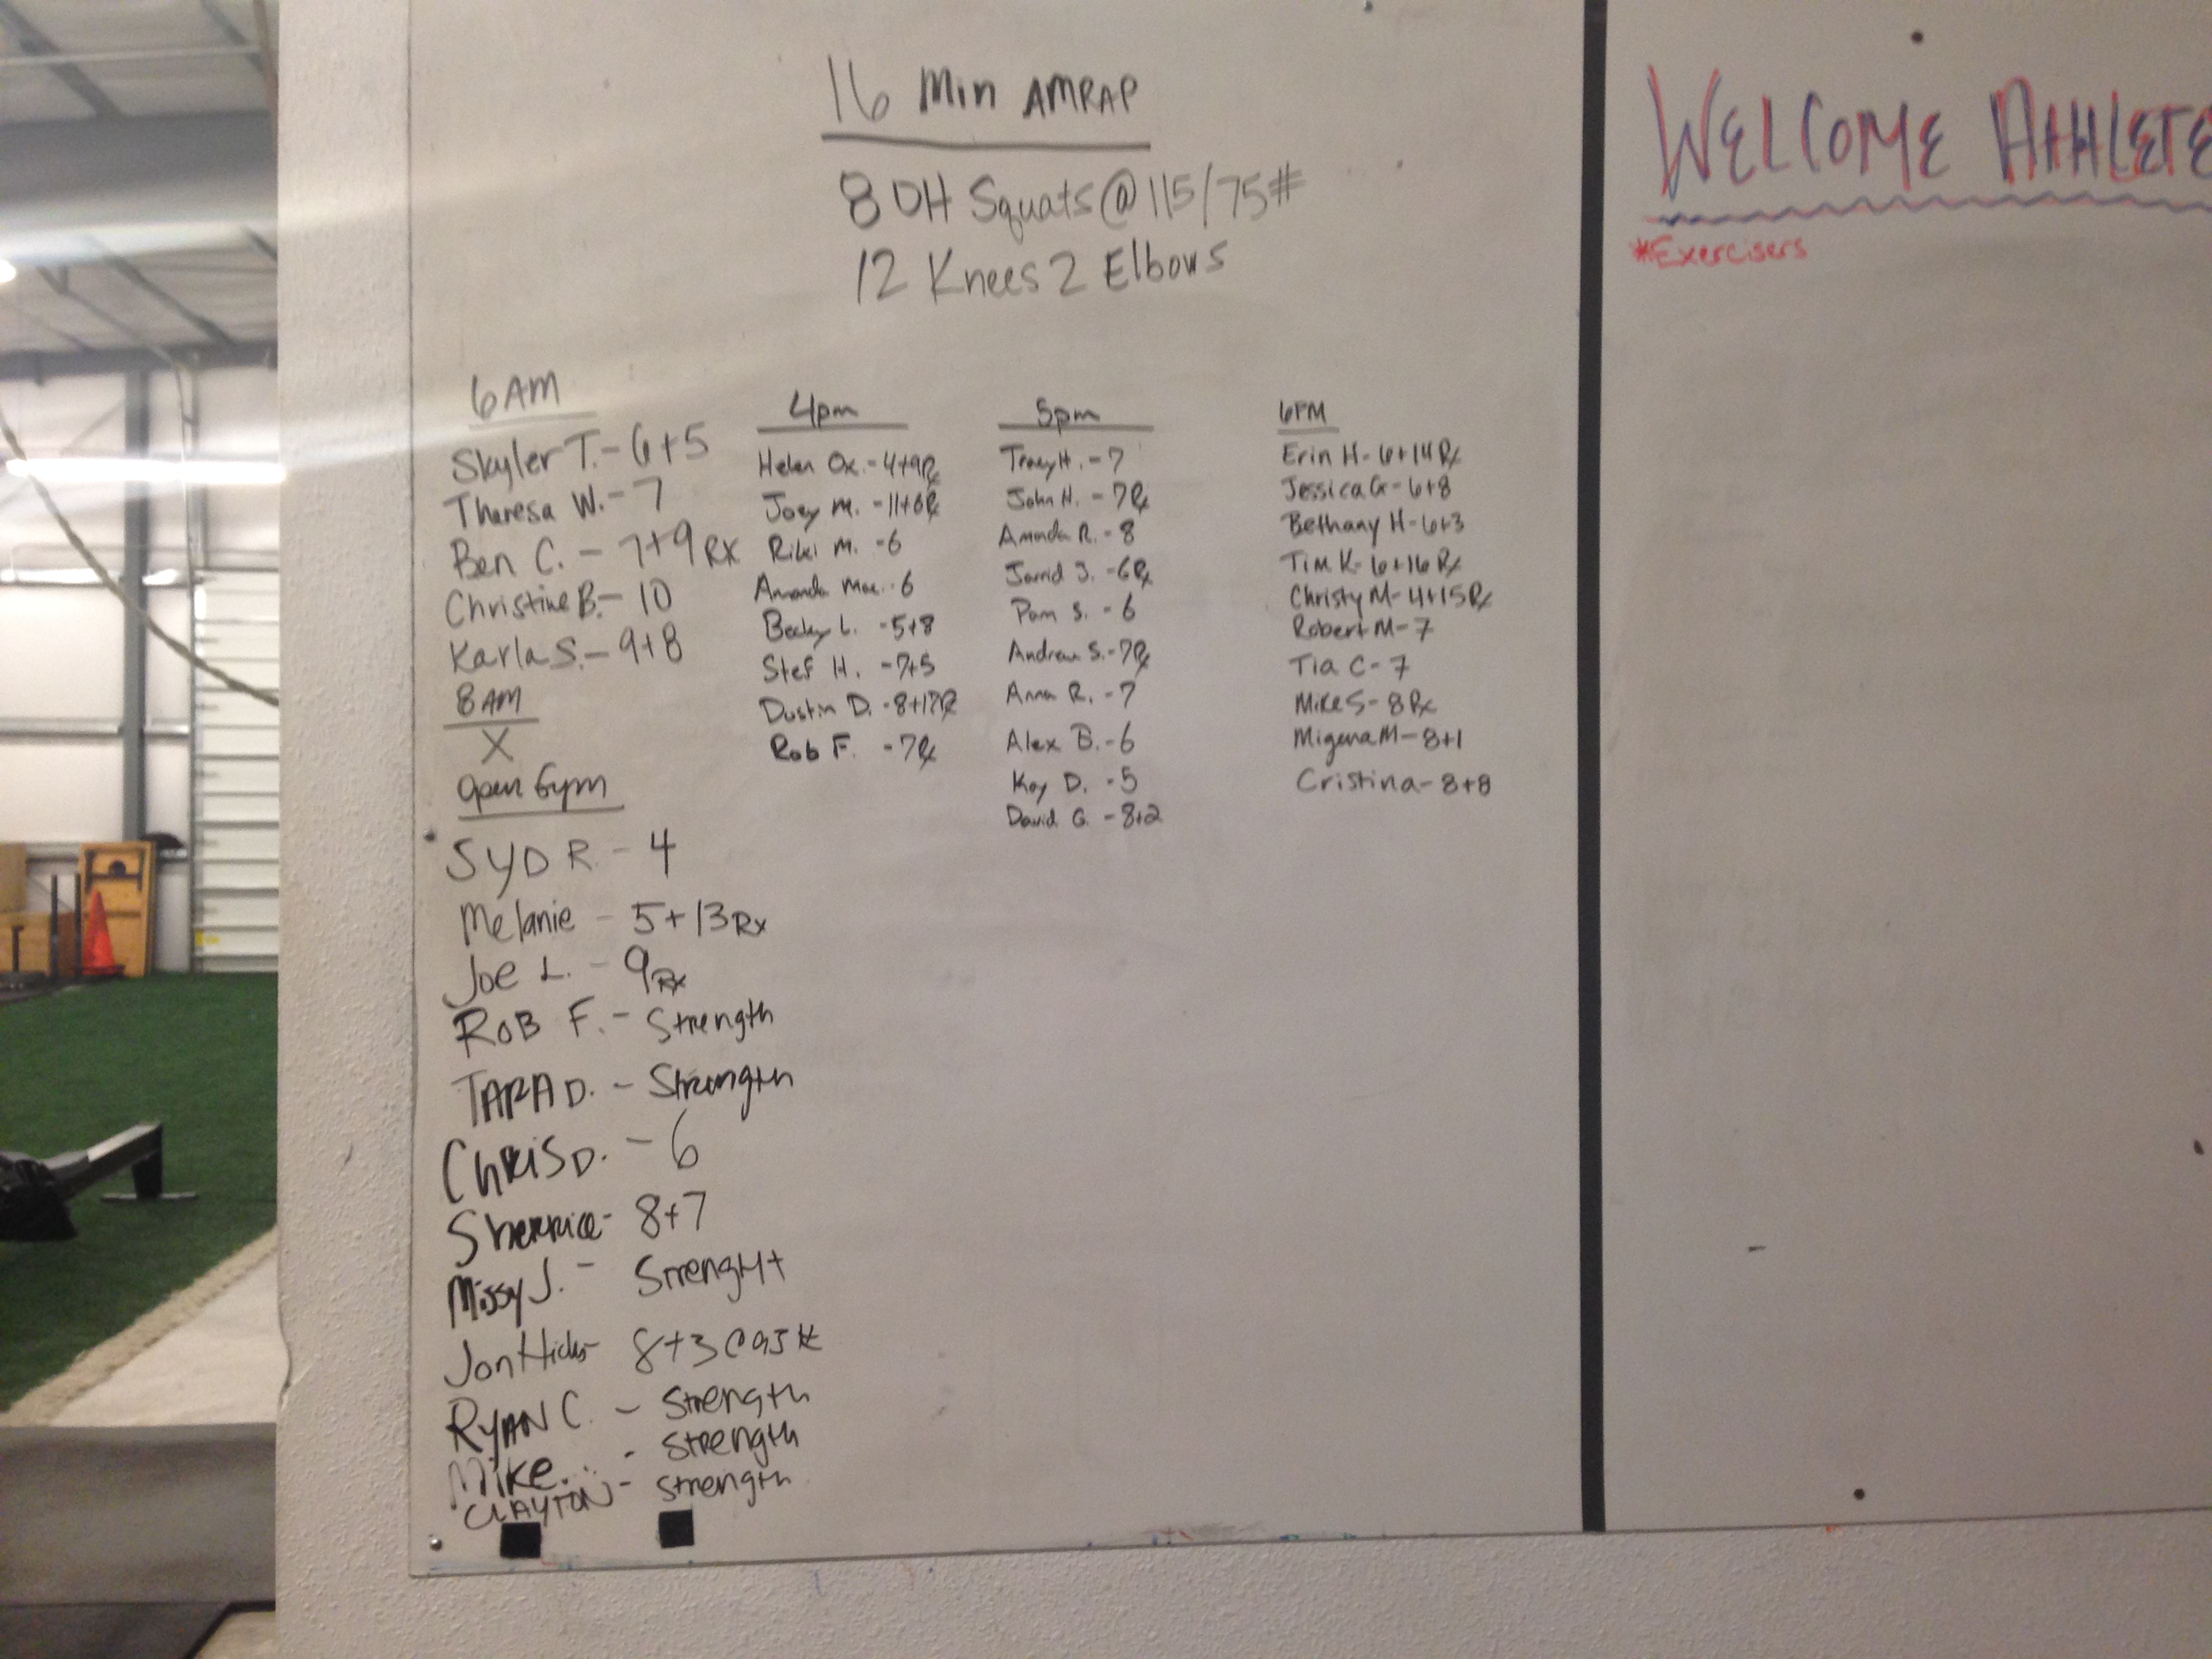 16 Min AMRAP
8 OH Squats @ 115/75#
12 Knees 2 Elbows
6AM
Skyler T. - 6+5
Theresa W. - 7
Ben C. - 7+9 RX
Christine B. - 10
Karla S. - 9+8
8AM
X
Open Gym
SYD R. - 4
Melanie - 5+13 Rx
Joe L. - 9 Rx
ROB F. - Strength
TARA D. - Strength
CHRIS D. - 6
Sherrice - 8+7
Missy J. - Strenght
Jon Hicks - 8+3 @ 95#
RYAN C. - Strength
Mike... - Strength
CLAYTON - Strength
4pm
Helen Ox. - 4+9 Rx
Joey M. - 11+6 Rx
Riki M. - 6
Amanda Mac. - 6
Becky L. - 5+8
Stef H. - 7+5
Dustin D. - 8+17 Rx
Rob F. - 7 Rx
5pm
Tracy H. - 7
John H. - 7 Rx
Amanda R. - 8
Jarrid J. - 6 Rx
Pam S. - 6
Andrew S. - 7 Rx
Anna R. - 7
Alex B. - 6
Kay D. - 5
David G. - 8+2
6PM
Erin H - 6+14 Rx
Jessica G - 6+8
Bethany H - 6+3
Tim K - 6+16 Rx
Christy M - 4+15 Rx
Robert M - 7
Tia C - 7
Mike S - 8 Rx
Migena M - 8+1
Cristina - 8+8
WELCOME ATHLETE
#Exercisers